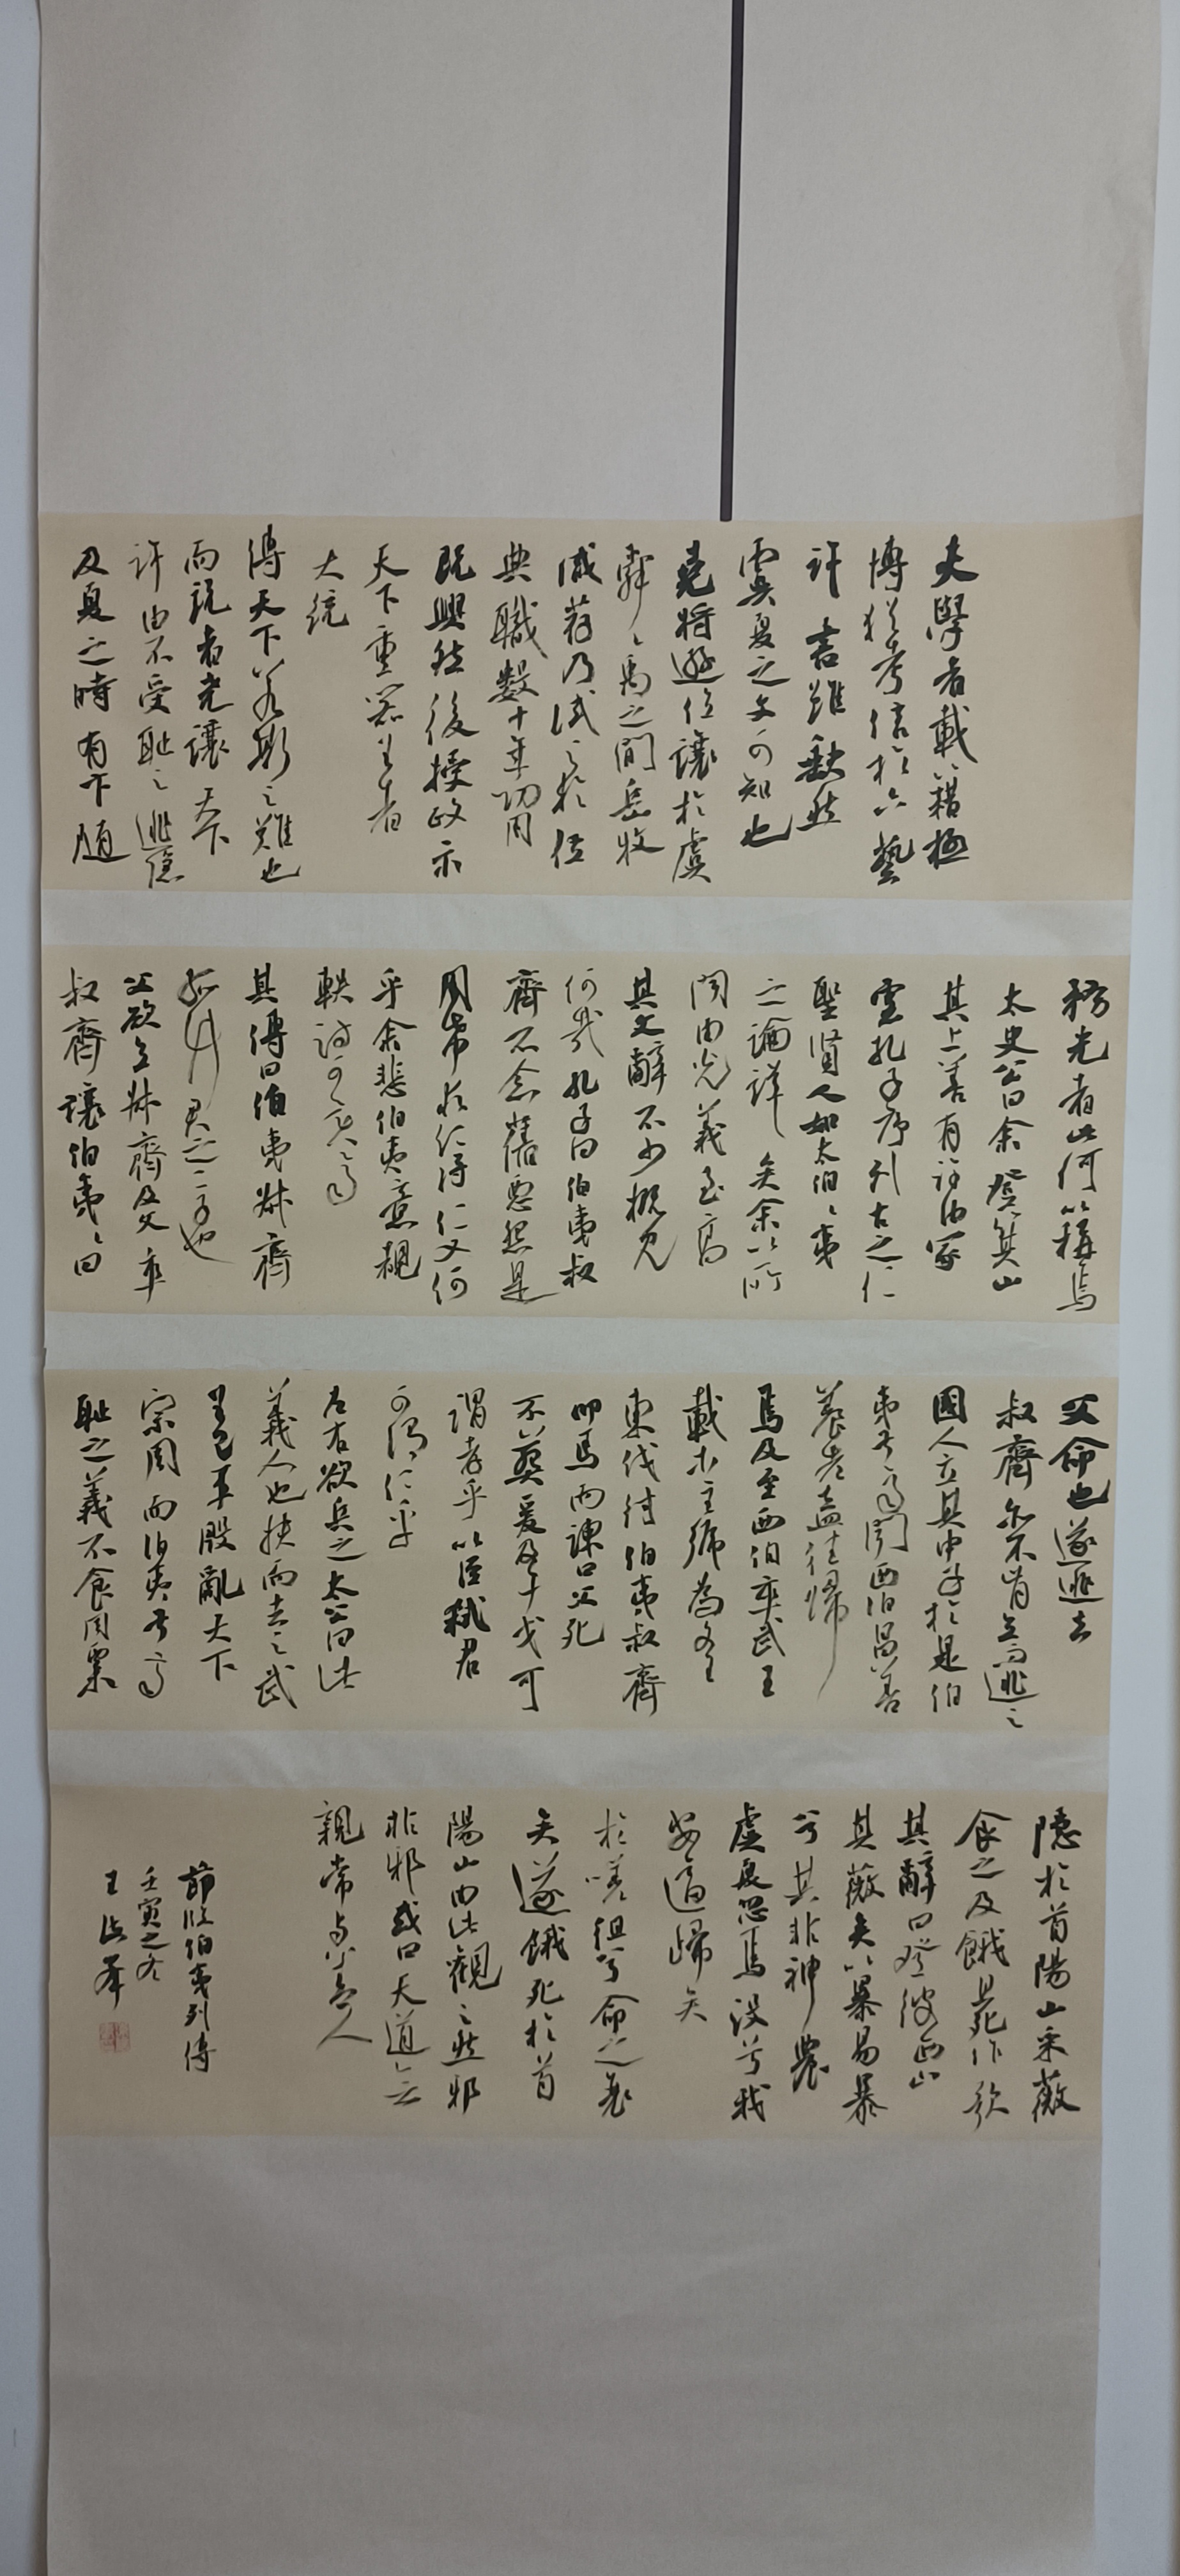 夫學者載籍極
博猶考信於六藝
詩書雖缺然
虞夏之文可知也
堯將遜位讓於虞
舜〻禹之間岳牧
咸薦乃試之於位
典職數十年功用
既興然後授政示
天下重器王者
大統
傳天下若斯之難也
而說者堯讓天下
許由不受耻之逃隱
及夏之時有卞隨
務光者此何以稱焉
太史公曰余登箕山
其上蓋有許由冢
云孔子序列古之仁
聖賢人如太伯〻夷
之論詳矣余以所
聞由光義至高
其文辭不少概見
何哉孔子曰伯夷叔
齊不念舊惡怨是
用希求仁得仁又何
乎余悲伯夷意覩
軼詩可異焉
其傳曰伯夷叔齊
孤竹君之二子也
父欲立叔齊及父卒
叔齊讓伯夷〻曰
父命也遂逃去
叔齊亦不肯立而逃之
國人立其中子於是伯
夷叔齊聞西伯昌善
養老盍往歸
焉及至西伯卒武王
載木主號為文王
東伐紂伯夷叔齊
叩馬而諫曰父死
不葬爰及干戈可
謂孝乎以臣弒君
可謂仁乎
左右欲兵之太公曰此
義人也扶而去之武
王已平殷亂天下
宗周而伯夷叔齊
耻之義不食周粟
隱於首陽山采薇
食之及餓且死作歌
其辭曰登彼西山
其薇矣以暴易暴
兮其非神農
虞夏忽焉沒兮我
安適歸矣
於嗟徂兮命之衰
矣遂餓死於首
陽山由此觀之怨邪
非邪或曰天道無
親常與善人
節臨伯夷列傳
壬寅之冬
王